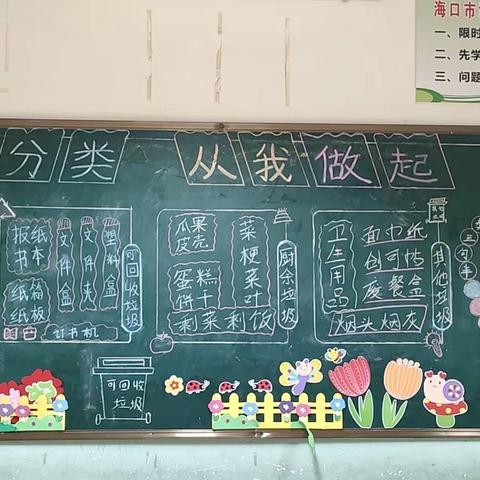 海口市
一、限时
二、先学
三、问题
分类 从我做起
报纸
书本
纸箱
纸板
文件盒
文件夹
塑料盒
订书机
可回收垃圾
瓜果
皮壳
菜梗菜叶
蛋糕
饼干
剩菜剩饭
厨余垃圾
卫生用品
面巾纸
创可帖
废餐盒
烟头烟灰
其他垃圾
三句半
可回收
垃圾